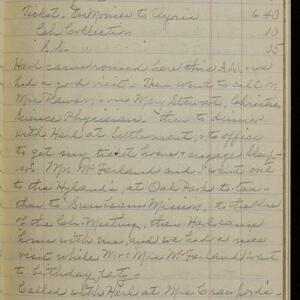 Ticket - Des Moines to Elyria 6 40
Ch. Collection 10
05
Harl came round here this A.M. + we
had a good visit - Then went to call on
Mrs Rawson - on Mary Stewart, Christian
Science Physician - Then to dinner
with Harl at Settlement, + to office
to get my ticket home + engage sleep-
er. Mrs McFarland and I went out
to the Hylands, at Oak Park to tea -
then to Sunbeam Mission, to the close
of the Ch. Meeting, then Harl came
home with me, and we had a nice
visit while Mr + Mrs McFarland went
to birthday party -
Called with Harl at Mrs Crawford's -